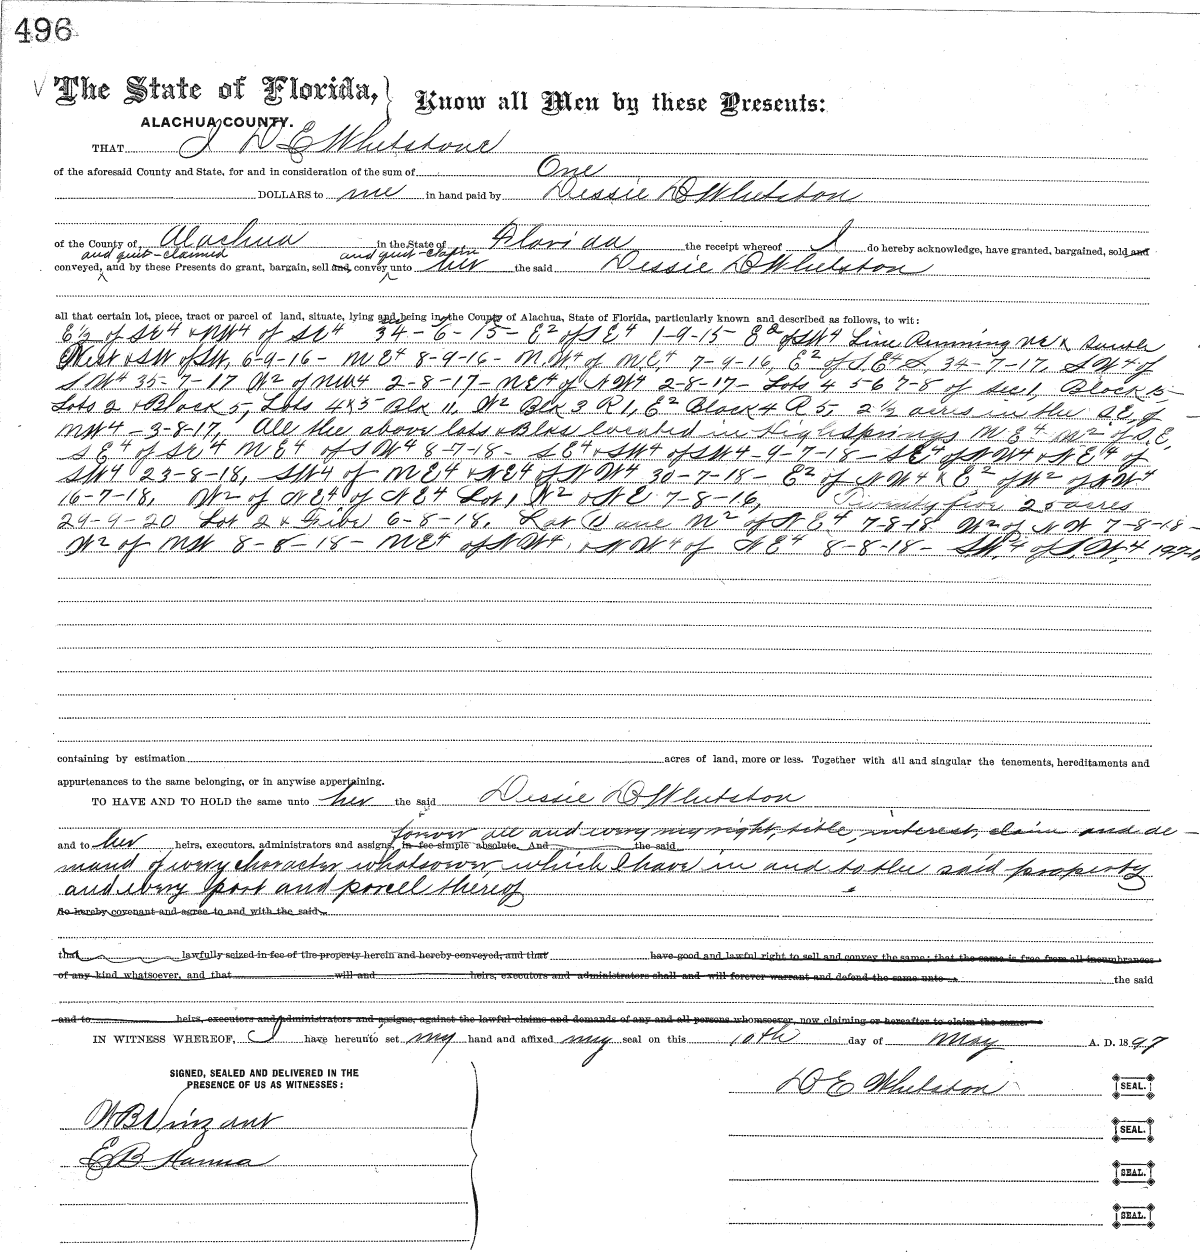 496
The State of Florida, } Know all Men by these Presents:
ALACHUA COUNTY.
THAT I D E Whetstone
of the aforesaid County and State, for and in consideration of the sum of One
DOLLARS to me in hand paid by Dessie D Whetston
of the County of Alachua in the State of Florida the receipt whereof I do hereby acknowledge, have granted, bargained, sold and
and quit-claimed and quit-claim
conveyed, and by these Presents do grant, bargain, sell and convey unto her the said Dessie D Whetston
all that certain lot, piece, tract or parcel of land, situate, lying and being in the County of Alachua, State of Florida, particularly known and described as follows, to wit:
E ½ of SE4 & NW4 of SE4 34-6-15- E2 of SE4 1-9-15- E2 of SW4 Line Running
West & SW of SW, 6-9-16- NE4 8-9-16- N.W4 of NE4 7-9-16, E2 of S.E4 34-7-17, SW4 of
SW4 35-7-17 W2 of NW4 2-8-17- NE4 of NW4 2-8-17- Lots 4 5 6 7-8 of Sec 1, Block 5-
Lots 2 & Block 5, Lots 4 & 5 Blk 11, W2 Blk 3 R1, E2 Block 4 R 5, 2 ½ acres in the SE, of
NW4 -3-8-17, All the above lots & Blks located in High Springs NE4 N2 of S.E,
SE4 of SE4 NE4 of SW4 8-7-18- SE4 & SW4 of SW4-9-7-18- SE4 of NW4 & NE4 of
SW4 23-8-18, SW4 of NE4 & NE4 of NW4 30-7-18- E2 of NW4 & E2 of W2 of NW4
16-7-18, W2 of NE4 of NE4 Lot 1, W2 & NE 7-8-16, Twenty five 25 acres
29-9-20 Lot 2 & Five 6-8-18, Lot One N2 of NE4 7-8-18 W2 of NW 7-8-18-
W2 of NW 8-8-18- NE4 of NW4, & NW4 of NE4 8-8-18- SW4 of SW4
containing by estimation acres of land, more or less. Together with all and singular the tenements, hereditaments and
appurtenances to the same belonging, or in anywise appertaining.
TO HAVE AND TO HOLD the same unto her the said Dessie D Whetston
forever all and every my right, title, interest, claim and de-
and to her heirs, executors, administrators and assigns, in fee simple absolute. And the said
mand of every character whatsoever, which I have in and to the said property
and every part and parcel thereof
do hereby covenant and agree to and with the said
that lawfully seized in fee of the property herein and hereby conveyed, and that have good and lawful right to sell and convey the same; that the same is free from all incumbrances
of any kind whatsoever, and that will and heirs, executors and administrators shall and will forever warrant and defend the same unto the said
and to heirs, executors and administrators and assigns, against the lawful claims and demands of any and all persons whomsoever, now claiming or hereafter to claim the same.
IN WITNESS WHEREOF, I have hereunto set my hand and affixed my seal on this 10th day of May A. D. 1897
SIGNED, SEALED AND DELIVERED IN THE
PRESENCE OF US AS WITNESSES:
D E Whetston SEAL.
W B Vinzant
SEAL.
E B Hanna
SEAL.
SEAL.